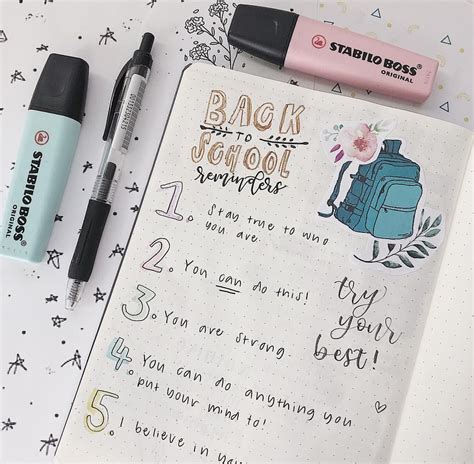 STABILO BOSS
ORIGINAL
STABILO BOSS
ORIGINAL
BACK
TO
SCHOOL
reminders
1. Stay true to who
you are.
2. You can do this!
3. You are strong.
4. You can do anything you
put your mind to!
5. I believe in you
try
your
best!